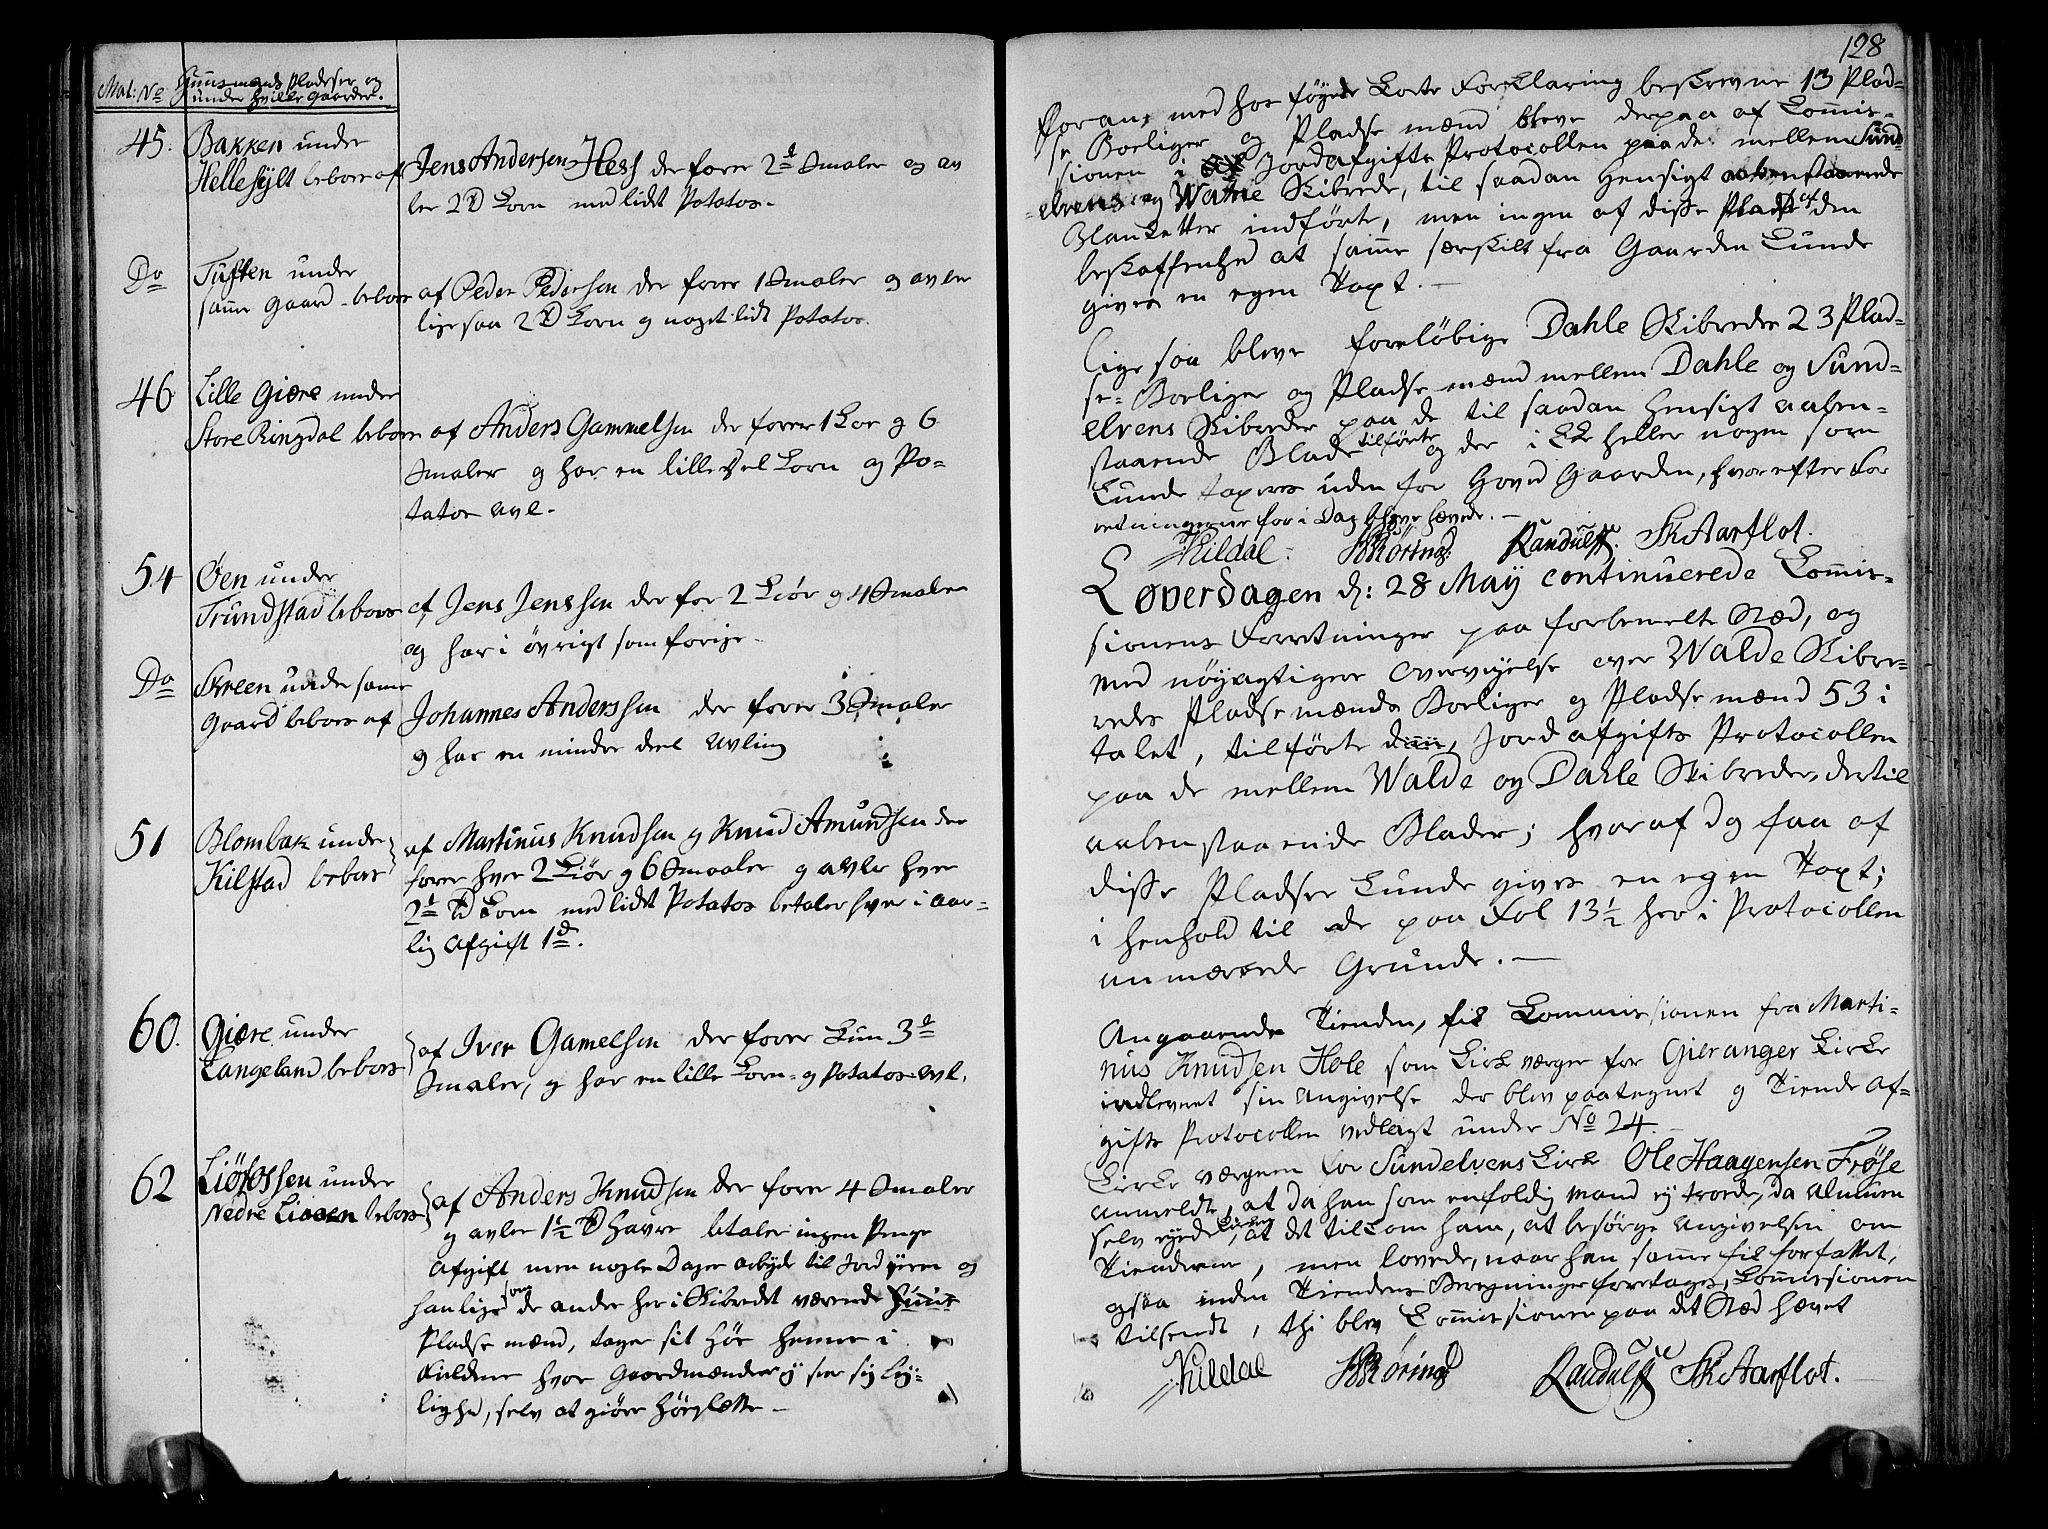 Mat: No Huusmands Pladser og
under hville Gaarder.
45. Bakken under
Hellesylt beboes af Jens Andersen Hess der foer 2de Smaler og av
ler 2 Td Korn med lidt Potatos.
Do Tuften under
samme Gaard beboes af Peder Pedersen der foerer 1 Smaler og avler
ligesaa 2 Td Korn og noget lidt Potatos.
46 Lille Giære under
Store Ringdal beboes af Anders Gammelsen der foerer 1 Koe og 6
Smaler og har en lille Deel Korn og Po-
tatos Avl.
54 Øen under
Trundstad beboes af Jens Jenssen der foer 2 Kiør og 4 Smaler
og har i øvrigt som forige.
Do Skreen under samme
Gaard beboes af Johannes Anderssen der foerer 3 Smaler
og har en mindre deel Avling
51 Blombak under
Kilstad beboes af Martinus Knudsen og Knud Amundsen der
foerer hver 2 Kiør og 6 Smaaler og avle hver
2de Td Korn med lidet Potatos betaler hver i aar-
lig Afgift 1 d.
60. Giære under
Langeland beboes af Iver Gamelsen der foerer Kun 3de
Smaler, og har en lille Korn- og Potatos-Avl.
62 Liøfossen under
Nedre Lioeen beboes af Anders Knudsen der foerer 4 Smaler
og avler 1½ Td Havre betaler ingen Penge
Afgift men nogle Dages arbeyde til Jord ejeren og
han ligesom de andre her i Skibredet værende Huus
Pladse mænd, tager sit Høe hemme i
Fieldene hvor Gaardmændene ej seer sig Lej-
lighed, selv at giøre Høeslette.
128
Foran, med hos føyede Korte Forklaring beskrevne 13 Plad-
se Boeliger og Pladse mænd bleve derpaa af Commis-
sionen i Jordafgifts Protocollen paa de mellem Sund-
elvens og Walde Skibrede, til saadan Hensigt aabenstaaende
Blanketter indførte, men ingen af disse Pladse af den
beskaffenhed at samme særskilt fra Gaarden Kunde
gives en egen Taxt.
Lige saa bleve foreløbige Dahle Skibredes 23 Plad-
se-Boeliger og Pladse mænd mellem Dahle og Sund-
elvens Skibreder paa de til saadan Hensigt aaben-
staaende Blade tilførte og der i Ek heller nogen som
Kunde taxeres uden for Hoved Gaarden, hvorefter For
retningerne for i Dag bleve hævede.
Kildal. Randulff. Sk Aarflot.
Løverdagen d: 28 May continuerede Commis-
sionens Forretninger paa forbemelte Stæd, og
med nøyagtigere Overvejelse over Walde Skibre-
redes Pladsemænds Boeliger og Pladse mænd 53 i
talet, tilførte dem, Jordafgifts Protocollen
paa de mellem Walde og Dahle Skibreder, dertil
aabenstaaende Blader; hvoraf og faa af
disse Pladser Kunde gives en egen Taxt;
i henhold til de paa Fol 13½ her i Protocollen
anmærkede Grunde.
Angaaende Tienden, fik Kommissionen fra Marti-
nus Knudsen Hole som Kirkeværger for Gieranger Kirke
indleveret sin Angivelse der blev paategnet og Tiende Af-
gifts Protocollen vedlagt under No 24
Kirke værgen for Sundelvens Kirke Ole Haagensen Frøse
anmeldt, at da han som enfoldig Mand ey troede, da Almuen
selv eyede Kirken, at det tilkom ham, at besørge Angivelsen om
Tienderne, men lovede, naar han samme fik forfattet,
ogsaa inden Tiendens Beregninger foretages, Kommissionen
tilsendt, thi blev Commissionen paa det Stæd hævet
Kildal Randulff Sk Aarflot.